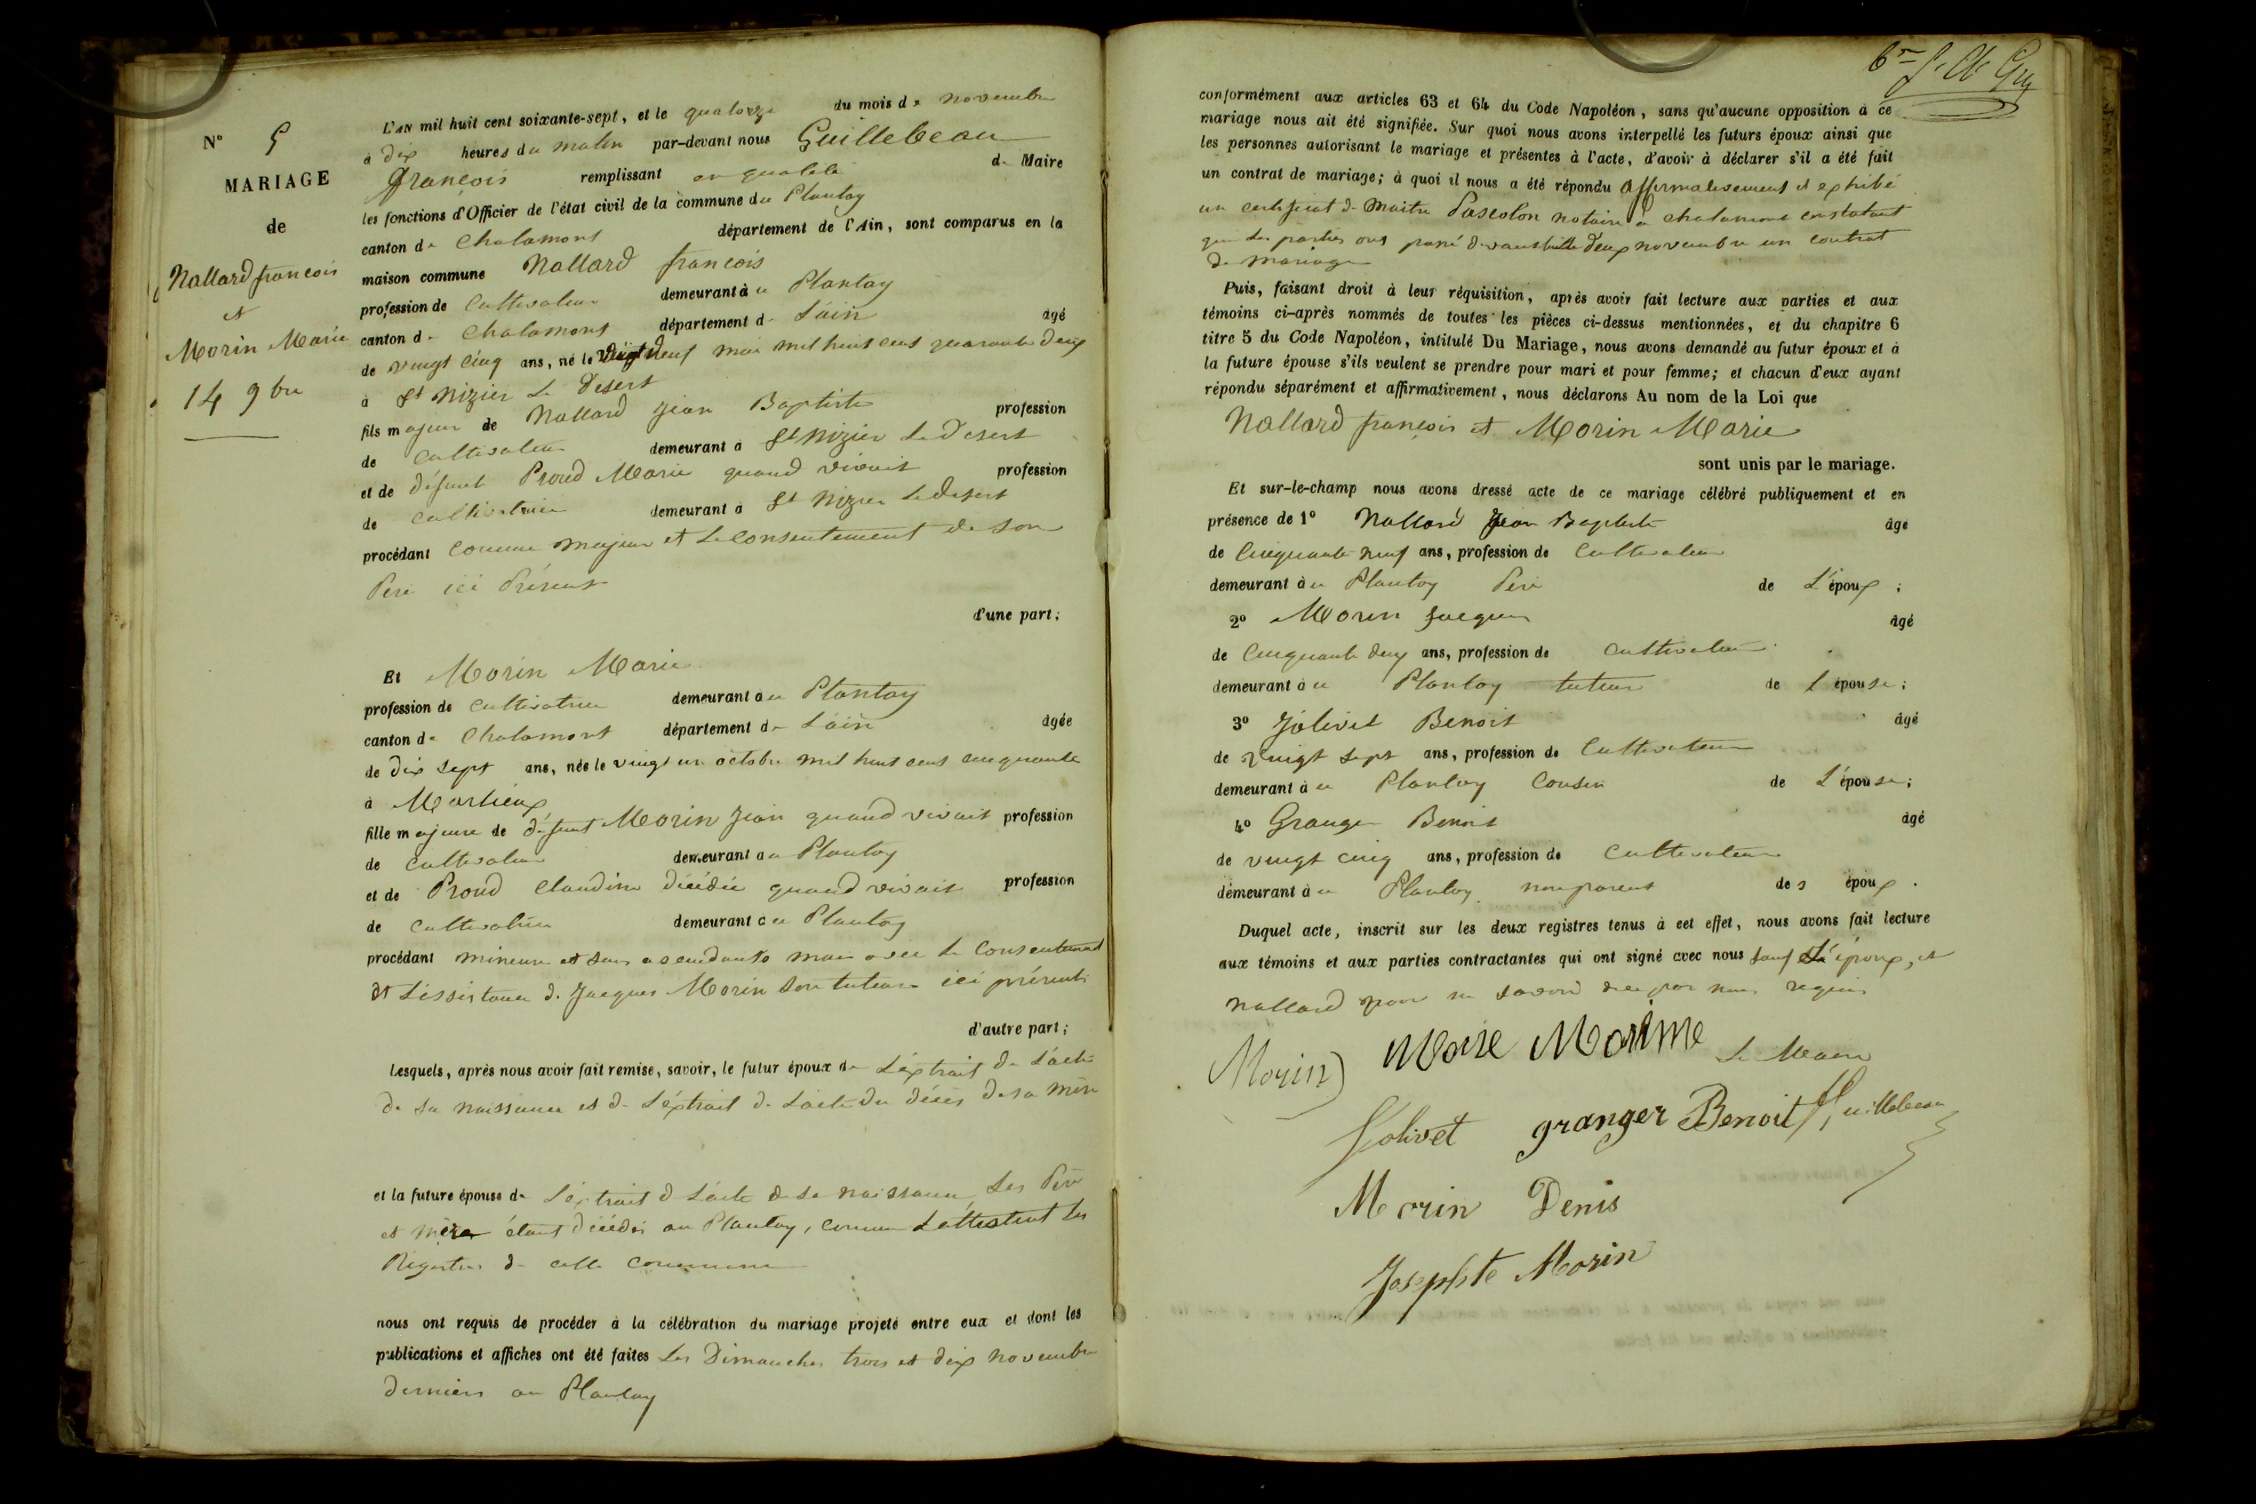 N° 5
MARIAGE
de
Nallard francois
et
Morin Marie
14 9bre
L'AN mil huit cent soixante-sept, et le quatorze du mois de novembre
à dix heures du matin par-devant nous Guillebeau
françois remplissant en qualité de Maire
les fonctions d'Officier de l'état civil de la commune du Plantay
canton de Chalamont département de l'Ain, sont comparus en la
maison commune Nallard francois
profession de Cultivateur demeurant à u Plantay
canton de Chalamont département de L'ain âgé
de vingt cinq ans, né le vingt neuf mai mil huit cent quarante deux
à St Nizier Le Désert
fils majeur de Nallard Jean Baptiste profession
de Cultivateur demeurant à St Nizier Le Désert
et de défunt Proud Marie quand vivait profession
de Cultivatrice demeurant à St Nizier Le Désert
procédant comme majeur et Le consentement de son
Père ici Présent
d'une part;
Et Morin Marie
profession de Cultivatrice demeurant à u Plantay
canton de Chalamont département de L'ain âgée
de dix sept ans, née le vingt un octobre mil huit cent cinquante
à Marlieux
fille majeure de défunt Morin Jean quand vivait profession
de Cultivateur demeurant au Plantay
et de Proud Claudine décédée quand vivait profession
de Cultivatrice demeurant au Plantay
procédant mineure et sans ascendants mais avec le Consentement
et L'assistance de Jacques Morin son tuteur ici présent
d'autre part;
Lesquels, après nous avoir fait remise, savoir, le futur époux de L'éxtrait de L'acte
de sa naissance et de L'éxtrait de L'acte du décès de sa mère
et la future épouse de L'éxtrait de L'acte de sa naissance, ses Père
et mère étant décédés au Plantay, comme L'attestent les
Régistres de cette Commune
nous ont requis de procéder à la célébration du mariage projeté entre eux et dont les
publications et affiches ont été faites Les Dimanches trois et dix novembre
derniers au Plantay
conformément aux articles 63 et 64 du Code Napoléon, sans qu'aucune opposition à ce
mariage nous ait été signifiée. Sur quoi nous avons interpellé les futurs époux ainsi que
les personnes autorisant le mariage et présentes à l'acte, d'avoir à déclarer s'il a été fait
un contrat de mariage; à quoi il nous a été répondu Affirmativement et exhibé
un certificat de Maitre Pascolon notaire à chalamont constatant
que les parties ont passé devant lui le deux novembre un contrat
de mariage
Puis, faisant droit à leur réquisition, après avoir fait lecture aux parties et aux
témoins ci-après nommés de toutes les pièces ci-dessus mentionnées, et du chapitre 6
titre 5 du Code Napoléon, intitulé Du Mariage, nous avons demandé au futur époux et à
la future épouse s'ils veulent se prendre pour mari et pour femme; et chacun d'eux ayant
répondu séparément et affirmativement, nous déclarons Au nom de la Loi que
Nallard françois et Morin Marie
sont unis par le mariage.
Et sur-le-champ nous avons dressé acte de ce mariage célébré publiquement et en
présence de 1° Nallard Jean Baptiste âgé
de Cinquante neuf ans, profession de Cultivateur
demeurant à u Plantay Père de L'époux;
2° Morin Jacques âgé
de Cinquante deux ans, profession de Cultivateur
demeurant à u Plantay tuteur de l'épouse;
3° Jolivet Benoit âgé
de vingt sept ans, profession de Cultivateur
demeurant à u Plantay Cousin de L'épouse;
4° Granger Benoit âgé
de vingt cinq ans, profession de Cultivateur
demeurant à u Plantay non parent des époux.
Duquel acte, inscrit sur les deux registres tenus à cet effet, nous avons fait lecture
aux témoins et aux parties contractantes qui ont signé avec nous sauf L'époux, et
Nallard pour ne savoir de ce par nous requis
Morin Marie Le Maire
Jolivet granger Benoit Guillebeau
Morin Denis
Josephte Morin